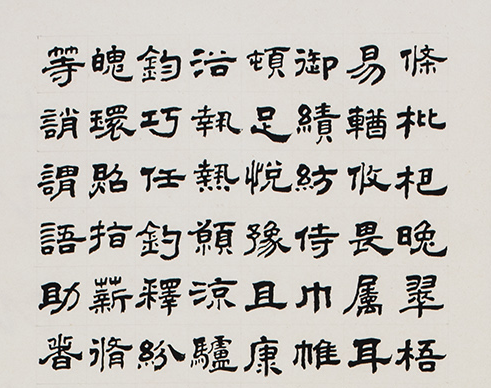 條枇杷晚翠梧
易輶攸畏屬耳
御績紡侍巾帷
頓足悅豫且康
浴執熱願涼驢
鈞巧任釣釋紛
魄環照指薪脩
等誚謂語助者